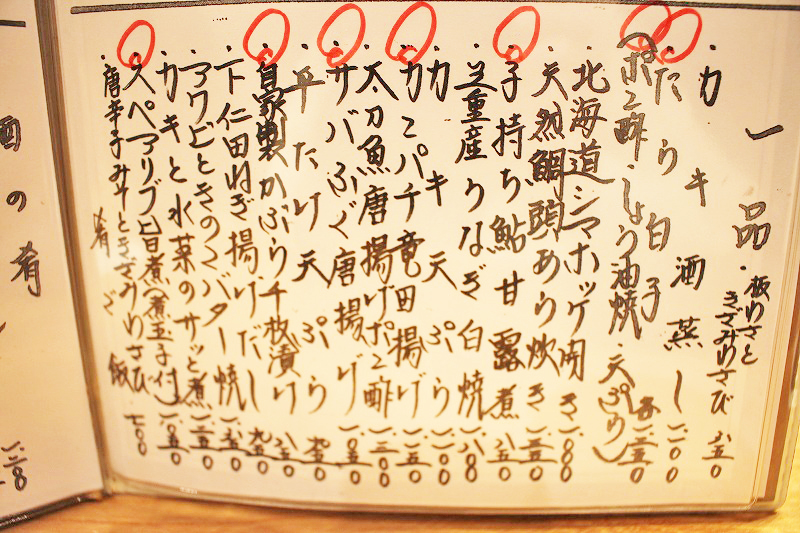 一品
・板わさと
きざみわさび 六五〇
・カキ酒蒸し 一、一〇〇
・たら白子
（ポン酢・しょう油焼・天ぷら） 各一、三五〇
・北海道シマホッケ開き 一、〇〇〇
・天然鯛頭あら炊き 一、三五〇
・子持ち鮎甘露煮 八五〇
・三重産うなぎ白焼 一、八〇〇
・カキ天ぷら 一、一〇〇
・カンパチ竜田揚げ 一、二五〇
・太刀魚唐揚げポン酢 一、三〇〇
・サバふぐ唐揚げ 一、〇五〇
・平たけ天ぷら 九〇〇
・自家製かぶら千枚漬け 八五〇
・下仁田ねぎ揚げだし 九五〇
・アワビときのこバター焼
・カキと水菜のサッと煮 一、二五〇
・スペアリブ旨煮（煮玉子付） 一、〇五〇
・唐辛子みそときざみわさび 七〇〇
肴
ご飯
酒の肴